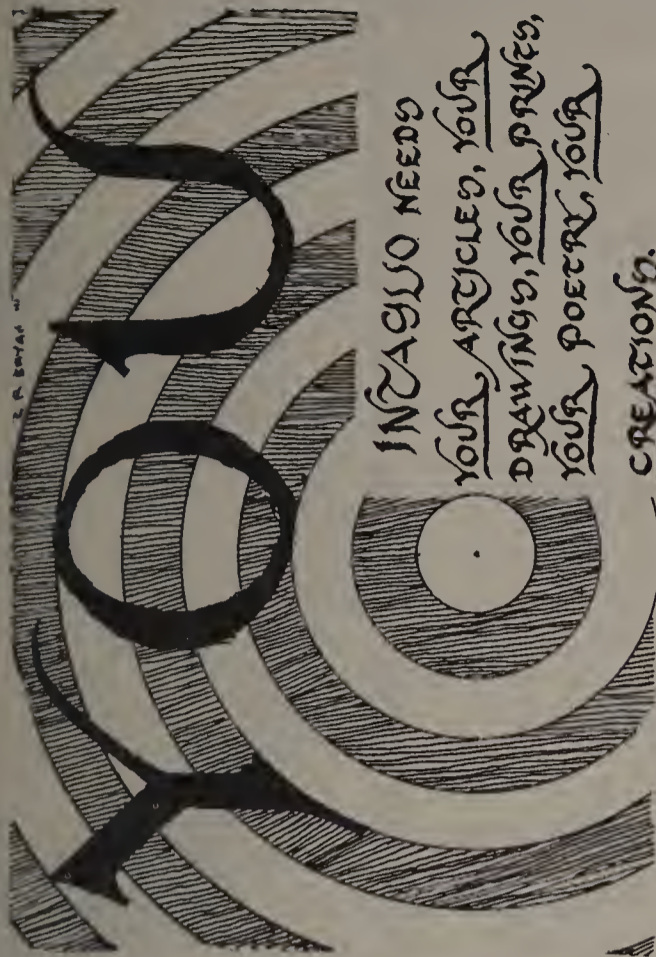 E R BRYAN
YOU
INTAGLIO NEEDS
YOUR ARTICLES, YOUR
DRAWINGS, YOUR PRINTS,
YOUR POETRY, YOUR
CREATIONS.